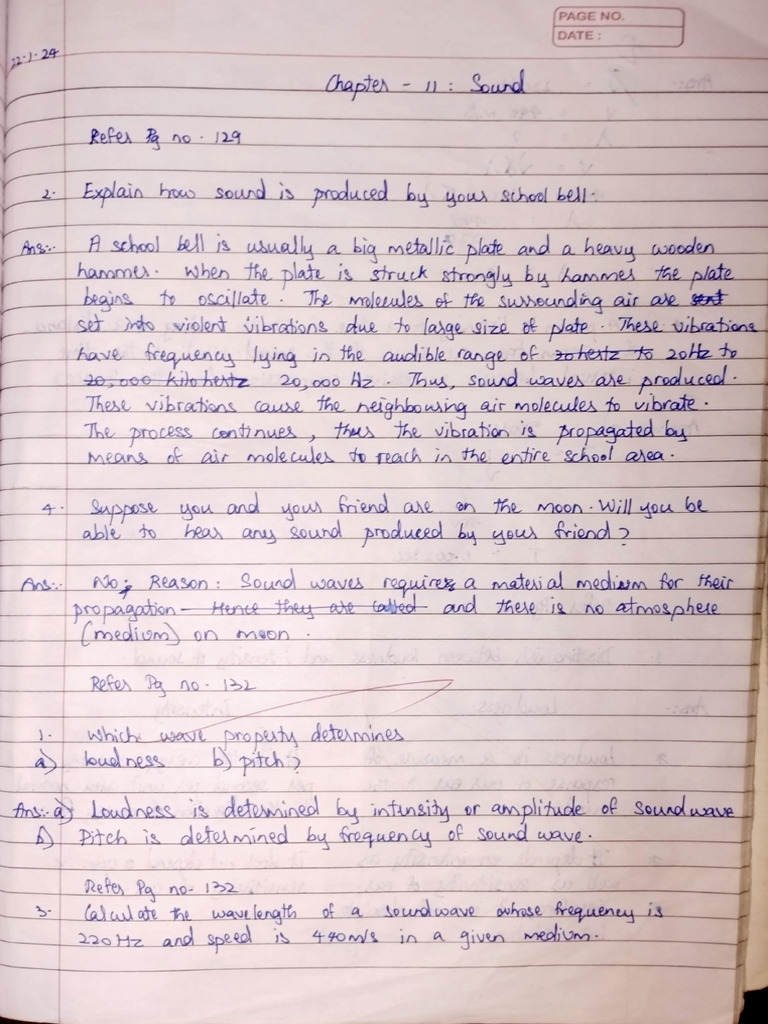 PAGE NO.
DATE:
22.1.24
Chapter - 11 : Sound
Refer Pg no. 129
2. Explain how sound is produced by your school bell.
Ans:- A school bell is usually a big metallic plate and a heavy wooden
hammer. When the plate is struck strongly by hammer the plate
begins to oscillate. The molecules of the surrounding air are
set into violent vibrations due to large size of plate. These vibrations
have frequency lying in the audible range of 20 hertz to 20Hz to
20,000 kilo hertz 20,000 Hz. Thus, sound waves are produced.
These vibrations cause the neighbouring air molecules to vibrate.
The process continues, thus the vibration is propagated by
means of air molecules to reach in the entire school area.
4. Suppose you and your friend are on the moon. Will you be
able to hear any sound produced by your friend?
Ans:- No; Reason: Sound waves require a material medium for their
propagation Hence they are called and there is no atmosphere
(medium) on moon.
Refer Pg no. 132
1. Which wave property determines
a) loudness b) pitch?
Ans:- a) Loudness is determined by intensity or amplitude of sound wave
b) Pitch is determined by frequency of sound wave.
Refer Pg no. 132
3. Calculate the wavelength of a soundwave whose frequency is
220Hz and speed is 440m/s in a given medium.